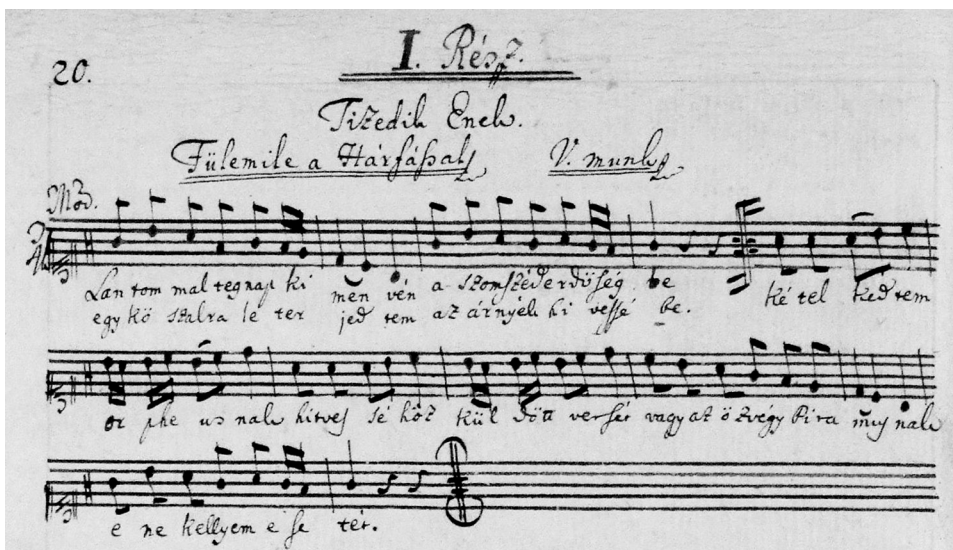 20.
I. Rész.
Tizedik Enek.
Fülemile a Hárfáßal V. munk
Mod.
Lan tom mal tegnap ki men vén a szomszéd erdöség be ké tel ked tem
egy kö szalra le ter jed tem az árnyék hi vessé be.
or phe us nak hitves sé höz kül dött versét vagy az özvégy Pira mus nak
e ne kellyem e se tét.